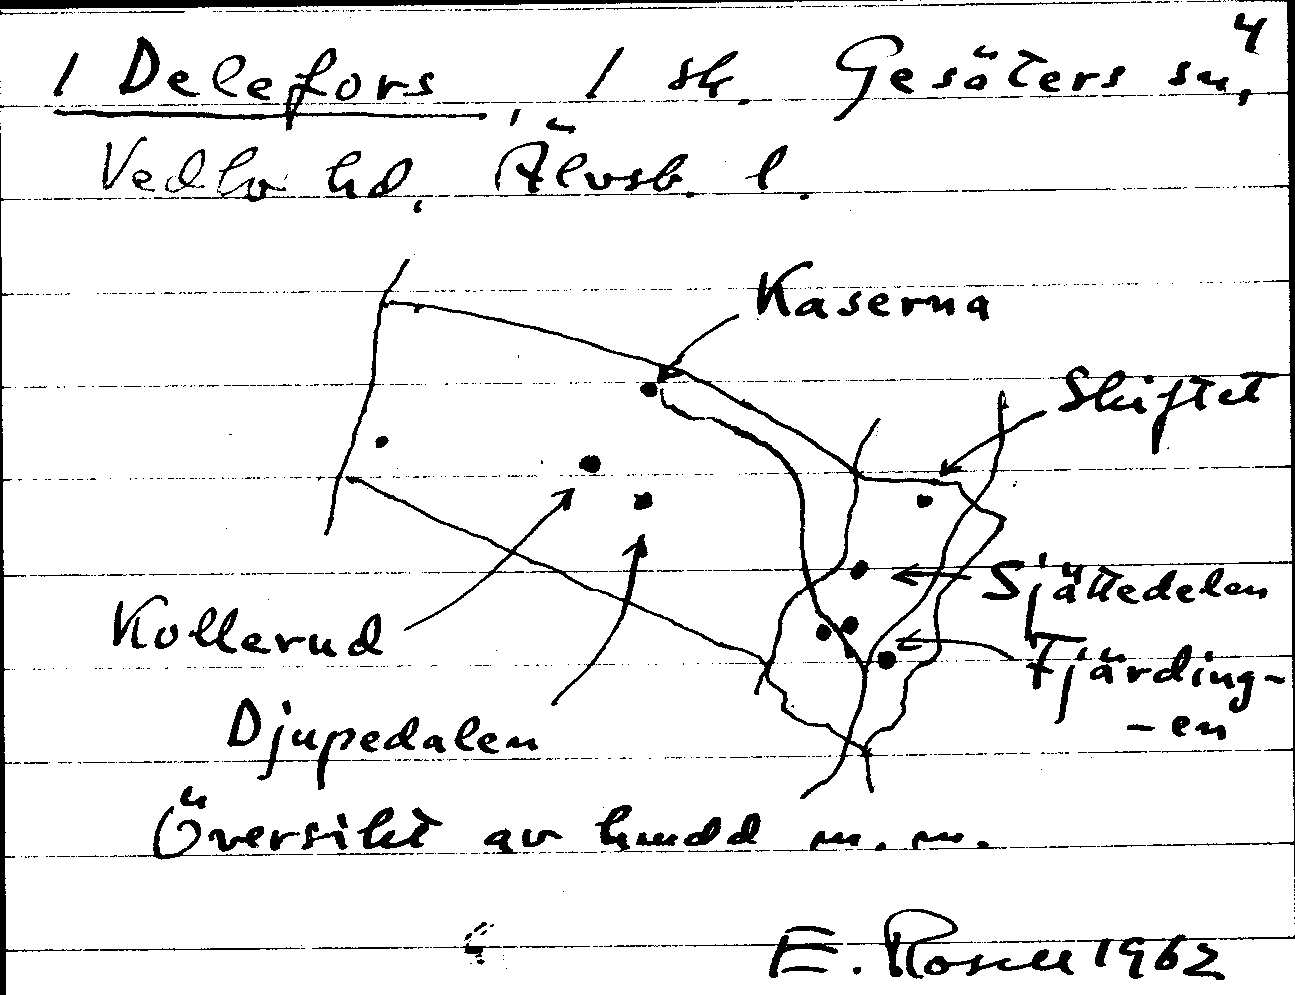 4
1 Delefors, 1 sk. Gesäters sn,
Vedbo hd, Älvsb. l.
Kaserna
Skiftet
Sjättedelen
Kollerud
Fjärding-
-en
Djupedalen
Översikt av hmdd m. m.
E. Rosell 1962